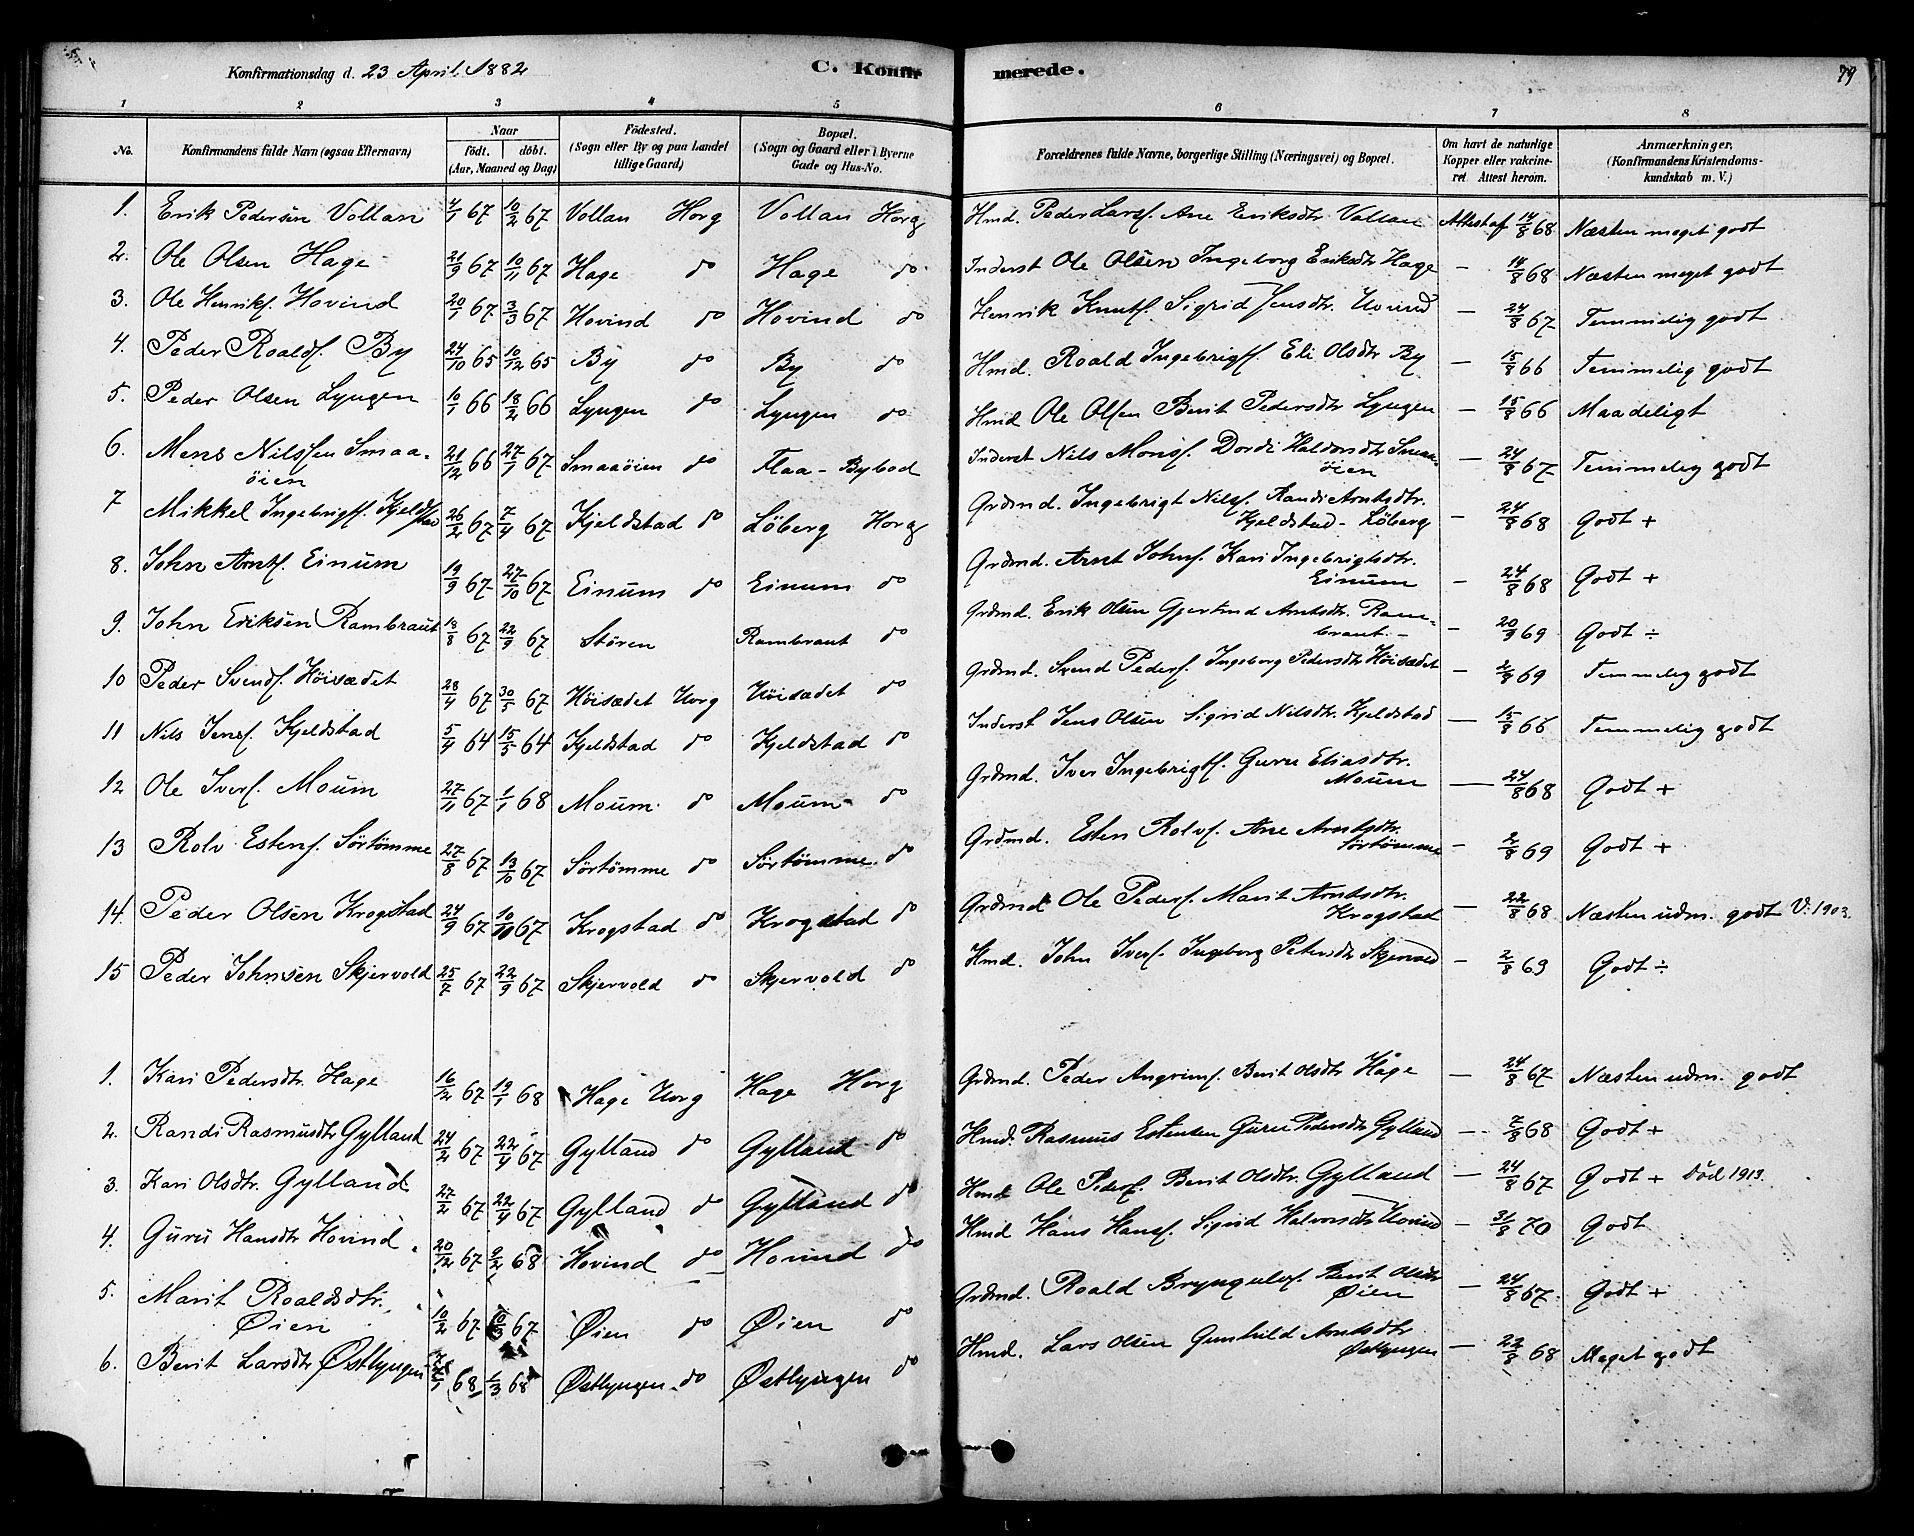 Konfirmationsdag d. 23 April 1882 C. Konfirmerede. 79
1 2 3 4 5 6 7 8
No. Konfirmandens fulde Navn (ogsaa Efternavn) Naar født. døbt. (Aar, Maaned og Dag) Fødested. (Sogn eller By og paa Landet tillige Gaard) Bopæl. (Sogn og Gaard eller i Byerne Gade og Hus-No. Forældrenes fulde Navne, borgerlige Stilling (Næringsvei) og Bopæl. Om havt de naturlige Kopper eller vakcineret Attest herom. Anmærkninger. (Konfirmandens Kristendomskundskab m. V.)
1. Erik Pedersen Vollan 4/1 67 10/2 67 Vollan Horg Vollan Horg Hmd. Peder Larsf. Ane Eriksdtr Vollan Attest af 14/8 68 Næsten meget godt
2. Ole Olsen Hage 21/9 67 10/11 67 Hage do Hage do Inderst Ole Olsen Ingeborg Eriksdtr Hage — 14/8 68 Næsten meget godt
3. Ole Henriks. Hovind 20/1 67 3/3 67 Hovind do Hovind do Henrik Knuts. Sigrid Jensdtr. Hovind — 24/8 67 Temmelig godt
4. Peder Roalds. By 24/10 65 10/12 65 By do By do Hmd. Roald Ingebrigts. Eli Olsdtr By — 15/8 66 Temmelig godt
5. Peder Olsen Lyngen 10/1 66 18/2 66 Lyngen do Lyngen do Hmd Ole Olsen Berit Pedersdtr Lyngen — 15/8 66 Maadeligt
6. Mons Nilssen Smaaøien 21/12 66 27/1 67 Smaaøien do Flaa - Bybod Inderst Nils Monss. Dordi Haldorsdtr Smaaøien — 24/8 67 Temmelig godt
7 Mikkel Ingebrigts. Kjeldstad 26/2 67 7/4 67 Kjeldstad do Løberg Horg Grdmd. Ingebrigt Nilss. Randi Arntsdtr. Kjeldstad - Løberg — 24/8 68 Godt +
8. John Arnts. Einum 19/9 67 27/10 67 Einum do Einum do Grdmd. Arnt Johns. Kari Ingebrigtsdtr. Einum — 24/8 68 Godt +
9. John Eriksen Rambraut 13/8 67 22/9 67 Støren Rambraut do Grdmd. Erik Olsen Gjertrud Arntsdtr. Rambraut. — 20/9 69 Godt ÷
10 Peder Svends. Høisædet 28/4 67 30/5 67 Høisædet Horg Høisædet do Grdmd. Svend Peders. Ingeborg Pedersdtr Høisædet — 2/8 69 Temmelig godt
11 Nils Jenss. Kjeldstad 5/4 64 15/5 64 Kjeldstad do Kjeldstad do Inderst Jens Olsen Sigrid Nilsdtr. Kjeldstad — 15/8 66 Temmelig godt
12 Ole Ivers. Moum 27/11 67 1/1 68 Moum do Moum do Grdmd. Iver Ingebrigts. Guru Eliasdtr. Moum — 24/8 68 Godt +
13 Rolv Estens. Sørtømme 27/8 67 13/10 67 Sørtømme do Sørtømme do Grdmd. Esten Rolvs. Ane Arntsdtr. Sørtømme — 2/8 69 Godt +
14. Peder Olsen Krogstad 24/9 67 10/11 67 Krogstad do Krogstad do Grdmd Ole Peders. Marit Arntsdtr. Krogstad — 22/8 68 Næsten udm. godt V. 1903.
15 Peder Johnsen Skjervold 25/7 67 22/9 67 Skjervold do Skjervold do Hmd. John Ivers. Ingeborg Petersdtr Skjervold — 2/8 69 Godt ÷
1. Kari Pedersdtr. Hage 16/12 67 19/1 68 Hage Horg Hage Horg Grdmd. Peder Angrims. Berit Olsdtr Håge — 24/8 67 Næsten udm. godt
2. Randi Rasmusdtr Gylland 24/2 67 22/4 67 Gylland do Gylland do Hmd. Rasmus Estensen Guru Pedersdtr Gylland — 7/8 68 Godt +
3. Kari Olsdtr. Gylland 27/2 67 22/4 67 Gylland do Gylland do Hmd Ole Peders. Berit Olsdtr. Gylland — 24/8 67 Godt + Død 1913.
4. Guru Hansdtr Hovind 20/12 67 9/2 68 Hovind do Hovind do Hmd Hans Hanss. Sigrid Halvorsdtr Hovind — 31/8 70 Godt
5. Marit Roaldsdtr. Øien 10/2 67 10/3 67 Øien do Øien do Grdmd. Roald Brynguls. Berit Olsdtr Øien — 24/8 67. Godt +
6. Berit Larsdtr Østlyngen 68 1/3 68 Østlyngen do Østlyngen do Hmd. Lars Olsen Gunhild Arntsdtr Østlyngen — 22/8 68 Meget godt